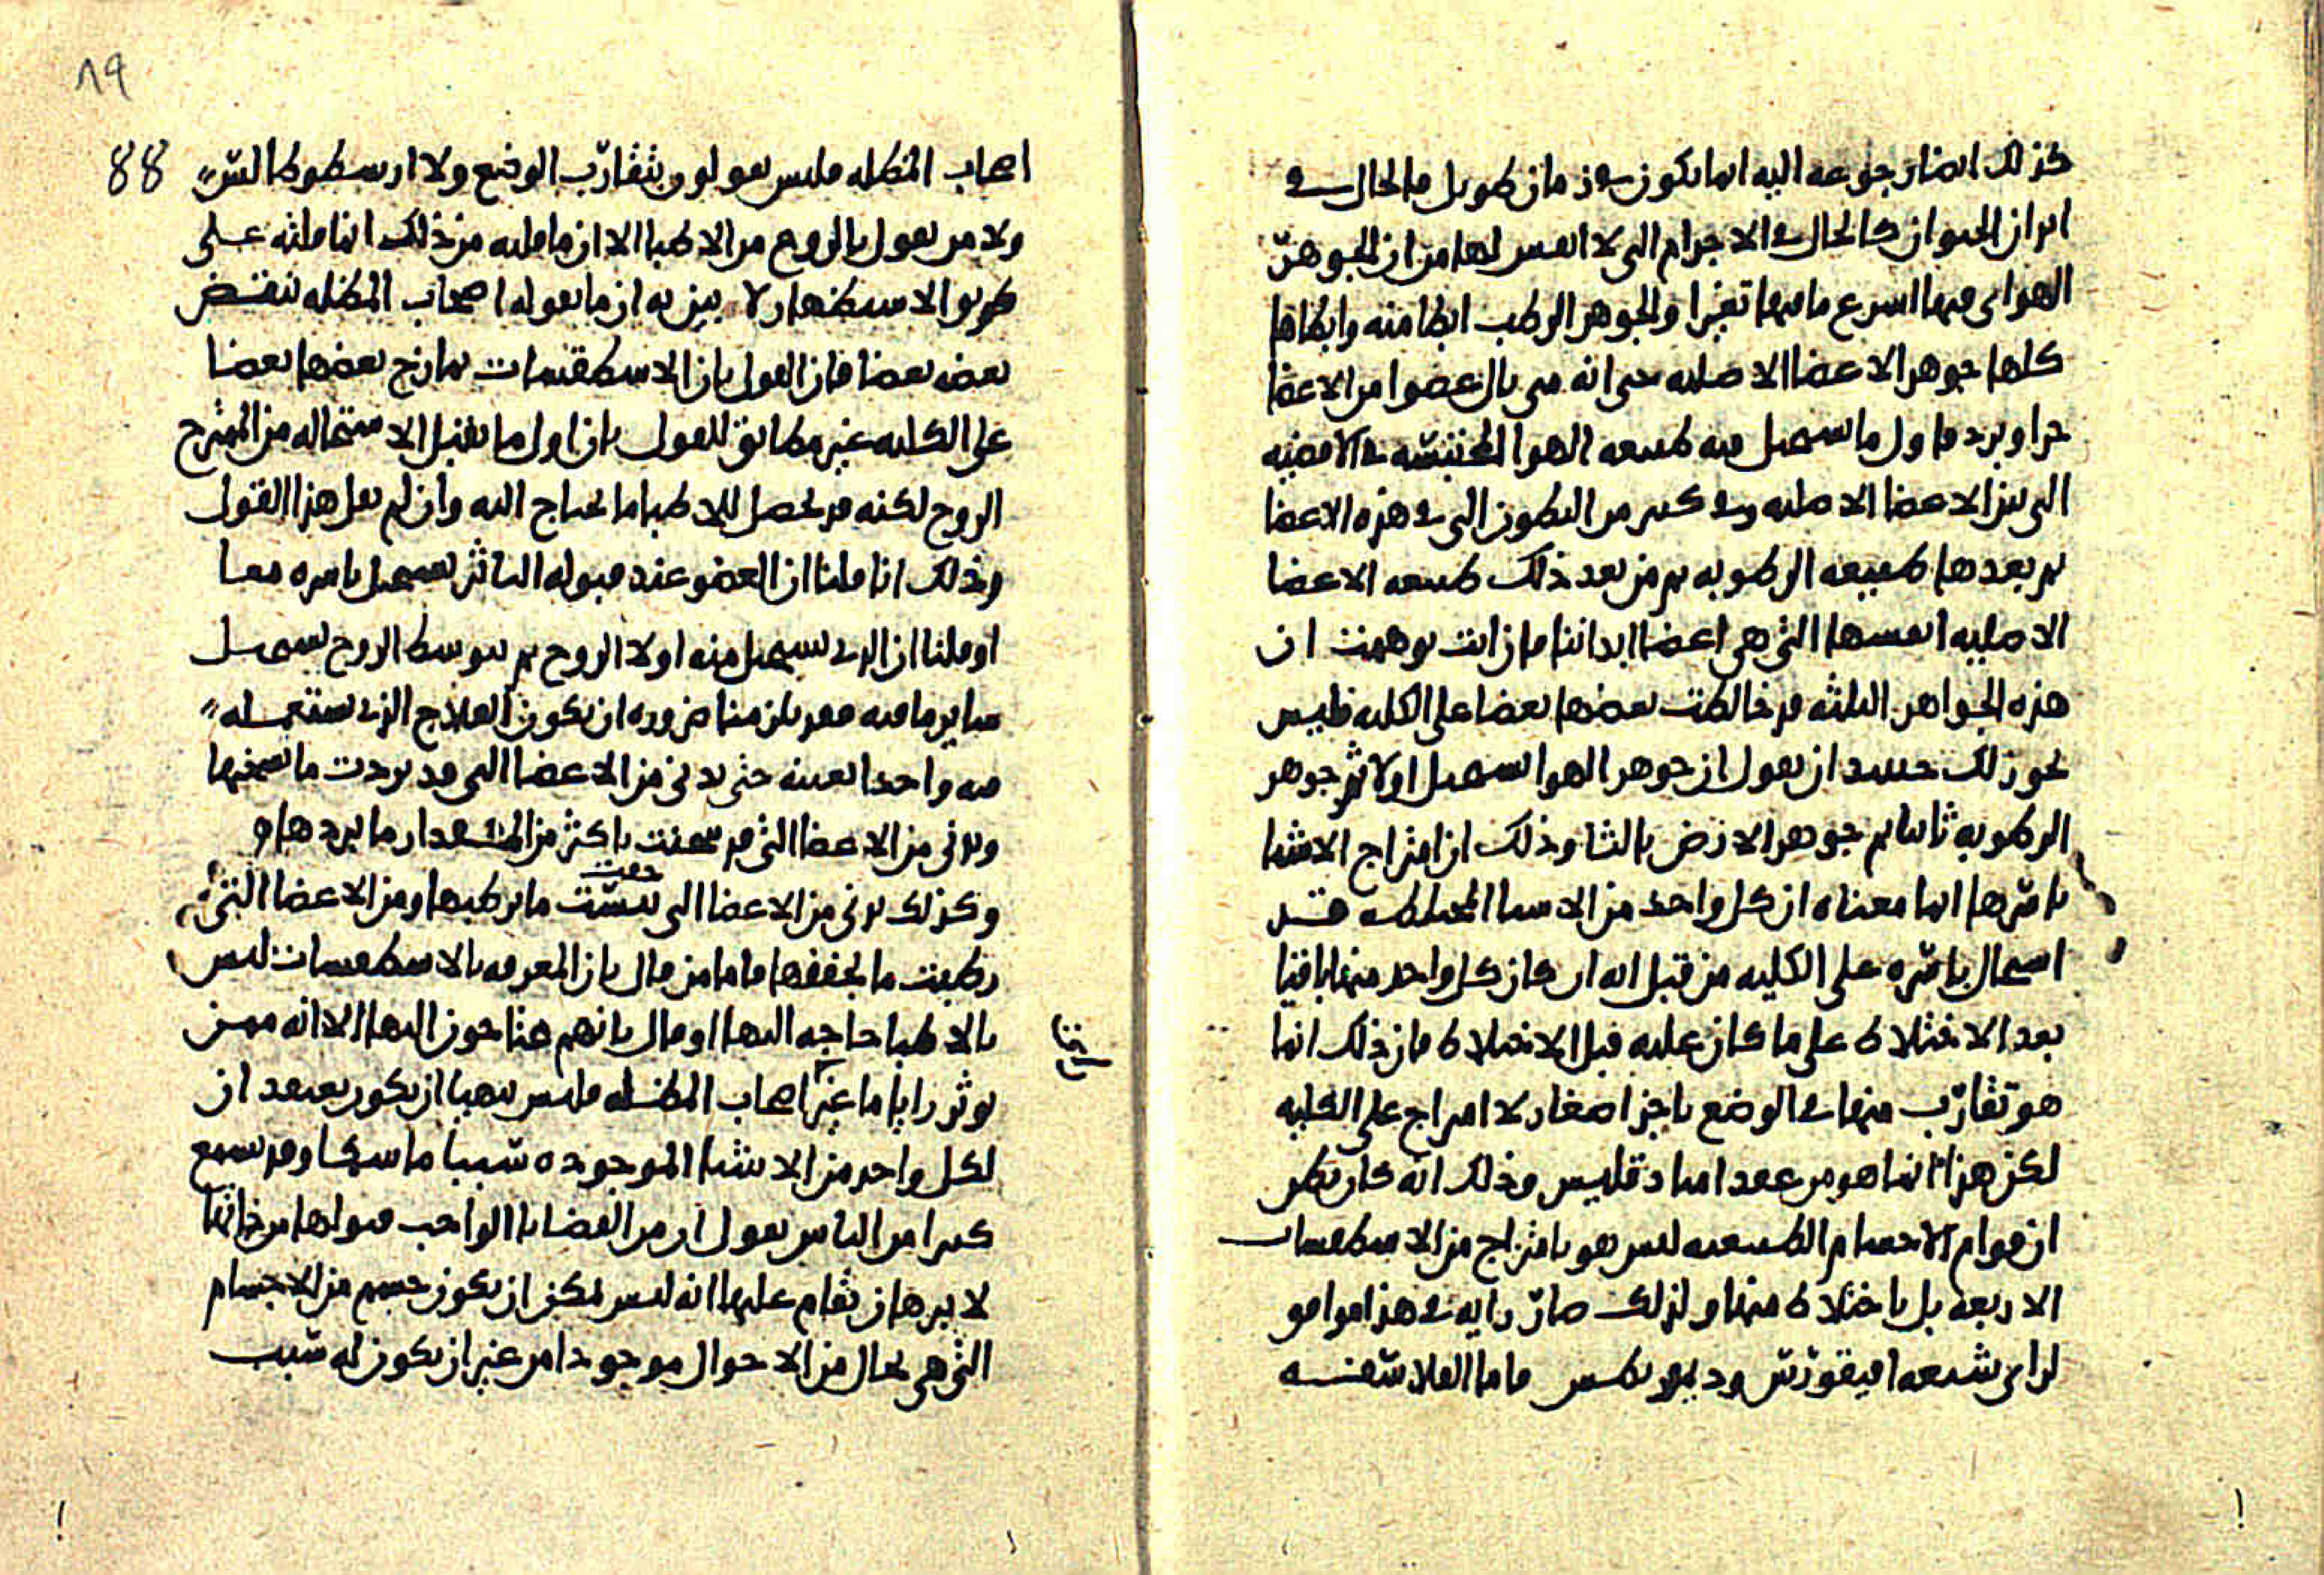 كذلك ايضا رجوعه اليه انما يكون في زمان طويل فالحال في
ابدان الحيوان كالحال في الاجرام التي لا انفس لها من ان الجوهر
الهواي منها اسرع ما فيها تغيرا والجوهر الرطب ابطا منه وابطاها
كلها جوهر الاعضا الاصليه حتى انه متى نال عضوا من الاعضا
حرا وبرد فاول ما يستحيل منه طبيعه الهوا المحتبسه في الافضيه
التي بين الاعضا الاصليه وفي كثير من البطون التي في هذه الاعضا
ثم بعدها طبيعه الرطوبه ثم من بعد ذلك طبيعه الاعضا
الاصليه انفسها التي هي اعضا ابداننا فان انت توهمت ان
هذه الجواهر الثلثه قد خالطت بعضها بعضا على الكليه فليس
يجوز لك حينيد ان تقول ان جوهر الهوا يستحيل اولا ثم جوهر
الرطوبه ثانيا ثم جوهر الارض ثالثا وذلك ان امتزاج الاشيا
باسرها انما معناه ان كل واحد من الاشيا المختلطه قد
استحال باسره على الكليه من قبل انه ان كان كل واحد منها باقيا
بعد الاختلاط على ما كان عليه قبل الاختلاط فان ذلك انما
هو تقارب منها في الوضع باجزا صغار لا امتزاج على الكليه
لكن هذا انما هو من عقد انبادقليس وذلك انه كان يظن
ان قوام الاجسام الطبيعيه ليس هو بامتزاج من الاسطقسات
الاربعه بل باختلاط منها ولذلك صار رايه في هذا موافق
لراي شيعه افيقورس وديموقريطس فاما الفلاسفه
٨٩
88
اصحاب المظله فليس يقولون بتقارب الوضع ولا ارسطوطالس
ولا من يقول بالروح من الاطبا الا ان ما قلته من ذلك انما قلته على
طريق الاستظهار لابين به ان ما يقوله اصحاب المظله تنقض
بعضه بعضا فان القول بان الاسطقسات يمازج بعضها بعضا
على الكليه غير مطابق للقول بان اول ما يقبل الاستحاله من الممتزج
الروح لكنه قد يحصل للاطبا ما يحتاج اليه وان لم يقل هذا القول
وذلك انا قلنا ان العضو عند قبوله التاثير يستحيل باسره معا
او قلنا ان الذي يستحيل منه اولا الروح ثم بتوسط الروح يستحيل
ساير ما فيه فقد يلزمنا ضروره ان يكون العلاج الذي نستعمله
فيه واحدا بعينه حتى يدني من الاعضا التي قد بردت ما يسخنها
ويدني من الاعضا التي قد سخنت باكثر من المقدار ما يبردها و
وكذلك يدني من الاعضا التي يبست جفت ما يرطبها ومن الاعضا التي
رطبت ما يجففها فاما من قال بان المعرفه بالاسطقسات ليس
بالاطبا حاجه اليها او قال بانهم يحتاجون اليها الا انه ممن
يوثر رايا ما غير اصحاب المظله فليس يتهيا ان يكون يعتقد ان
لكل واحد من الاشيا الموجوده سببا ما سيما وقد سمع
كثيرا من الناس يقول ان من القضايا الواجب قبولها من ذاتها
لا ببرهان تقام عليها انه ليس يمكن ان يكون جسم من الاجسام
التي هي بحال من الاحوال موجودا من غير ان يكون له سبب